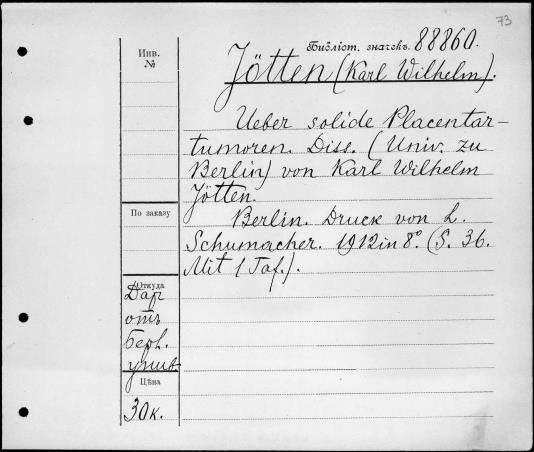 73
Библіот. значекъ. 88860.
Инв.
№
Jötten (Karl Wilhelm).
Ueber solide Placentar-
tumoren. Diss. (Univ. zu
Berlin) von Karl Wilhelm
Jötten.
Berlin. Druck von L.
Schumacher. 1912 in 8°. (S. 36.
Mit 1 Taf.).
По заказу
Откуда
Дар
отъ
Берл.
унив
Цѣна
30 к.